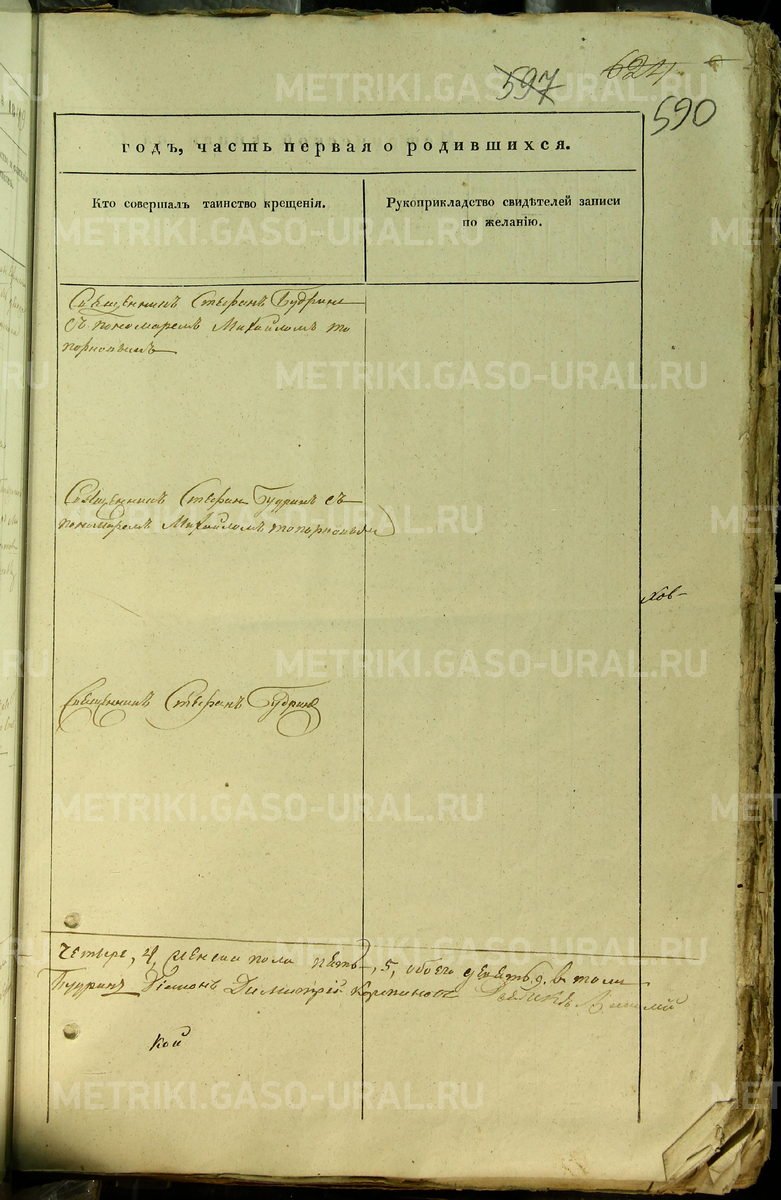 597
624
590
годъ, часть первая о родившихся.
Кто совершалъ таинство крещенія.
Рукоприкладство свидѣтелей записи
по желанію.
Священникъ Стефанъ Будринъ
съ пономаремъ Михайломъ То
порковымъ
Священникъ Стефанъ Будринъ съ
пономаремъ Михайломъ Топорковым
Священникъ Стефанъ Будринъ
четыре, 4, женска пола пять, 5, обоего девять, 9. в томъ
Будринъ Діаконъ Димитрій
кой
METRIKI.GASO-URAL.RU